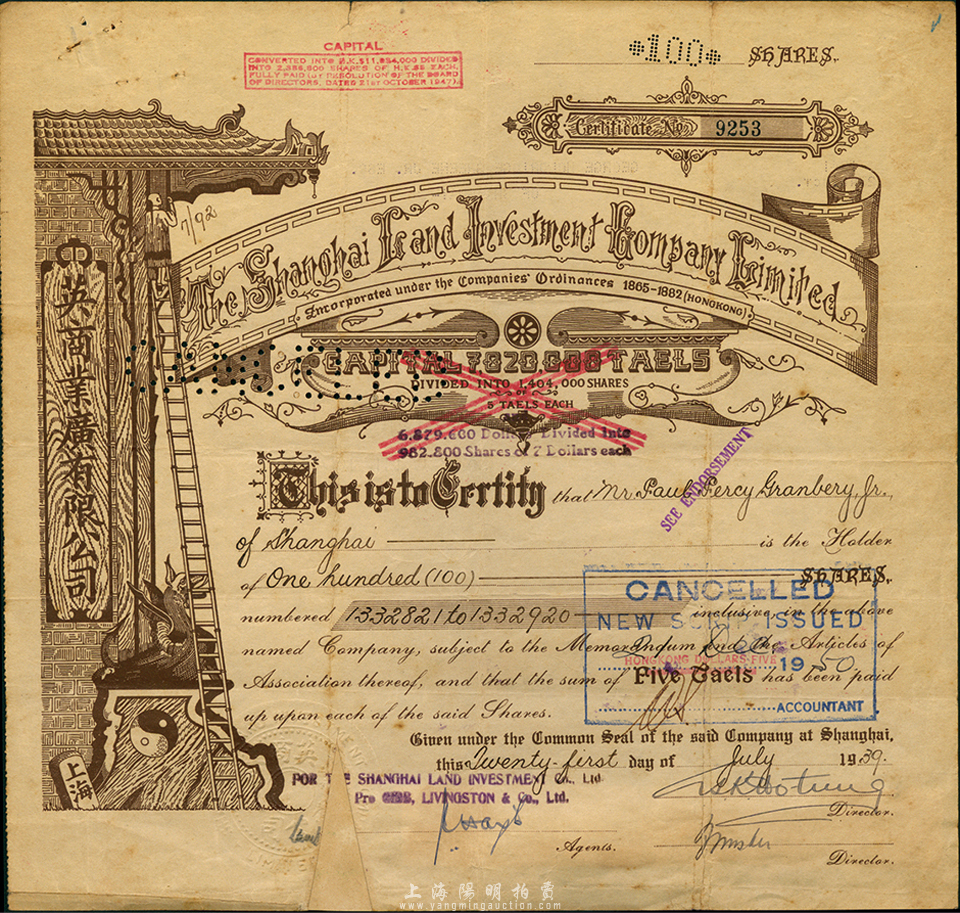 *100* SHARES.
CAPITAL
CONVERTED INTO H.K.$11,
INTO SHARES OF H.K.$5 EACH,
FULLY PAID (BY RESOLUTION OF THE BOARD
OF DIRECTORS, DATED 21ST OCTOBER 1947).
Certificate No 9253
7/92
The Shanghai Land Investment Company Limited.
Incorporated under the Companies' Ordinances 1865-1882 (HONGKONG)
CAPITAL 7020000 TAELS
DIVIDED INTO 1,404,000 SHARES
OF
5 TAELS EACH
6.879.600 Dollars Divided Into
982.800 Shares of 7 Dollars each
SEE ENDORSEMENT
英商業廣有限公司
This is to Certify that Mr. Paul Percy Granbery, Jr.,
of Shanghai is the Holder
of One hundred (100) SHARES,
numbered 1332821 to 1332920 inclusive in the above
named Company, subject to the Memorandum and the Articles of
Association thereof, and that the sum of Five Taels has been paid
up upon each of the said Shares.
CANCELLED
NEW SCRIP ISSUED
HONGKONG DOLLARS FIVE
1950
ACCOUNTANT
Given under the Common Seal of the said Company at Shanghai,
this Twenty-first day of July 1939.
上海
FOR THE SHANGHAI LAND INVESTMENT Co., Ltd.
Pro LIVINGSTON & Co., Ltd.
Agents.
Director.
Director.
上海陽明拍賣
www.yangmingauction.com